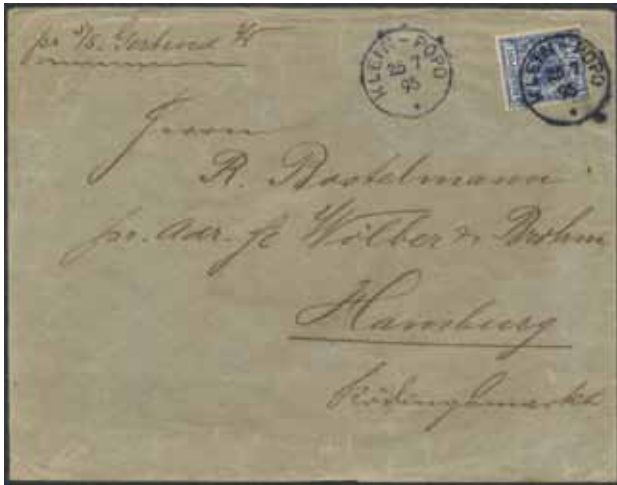 pr S/S. Gertrud
KLEIN-POPO
25 7
95
KLEIN-POPO
7
95
Herrn
R. Bostelmann
pr. Adr. Wölber & Brohm
Hamburg
Rödingsmarkt